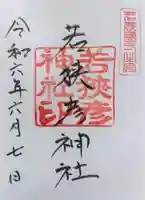 若狭國一之宮
若狭彦神社
若狭彦神社印
令和六年六月七日